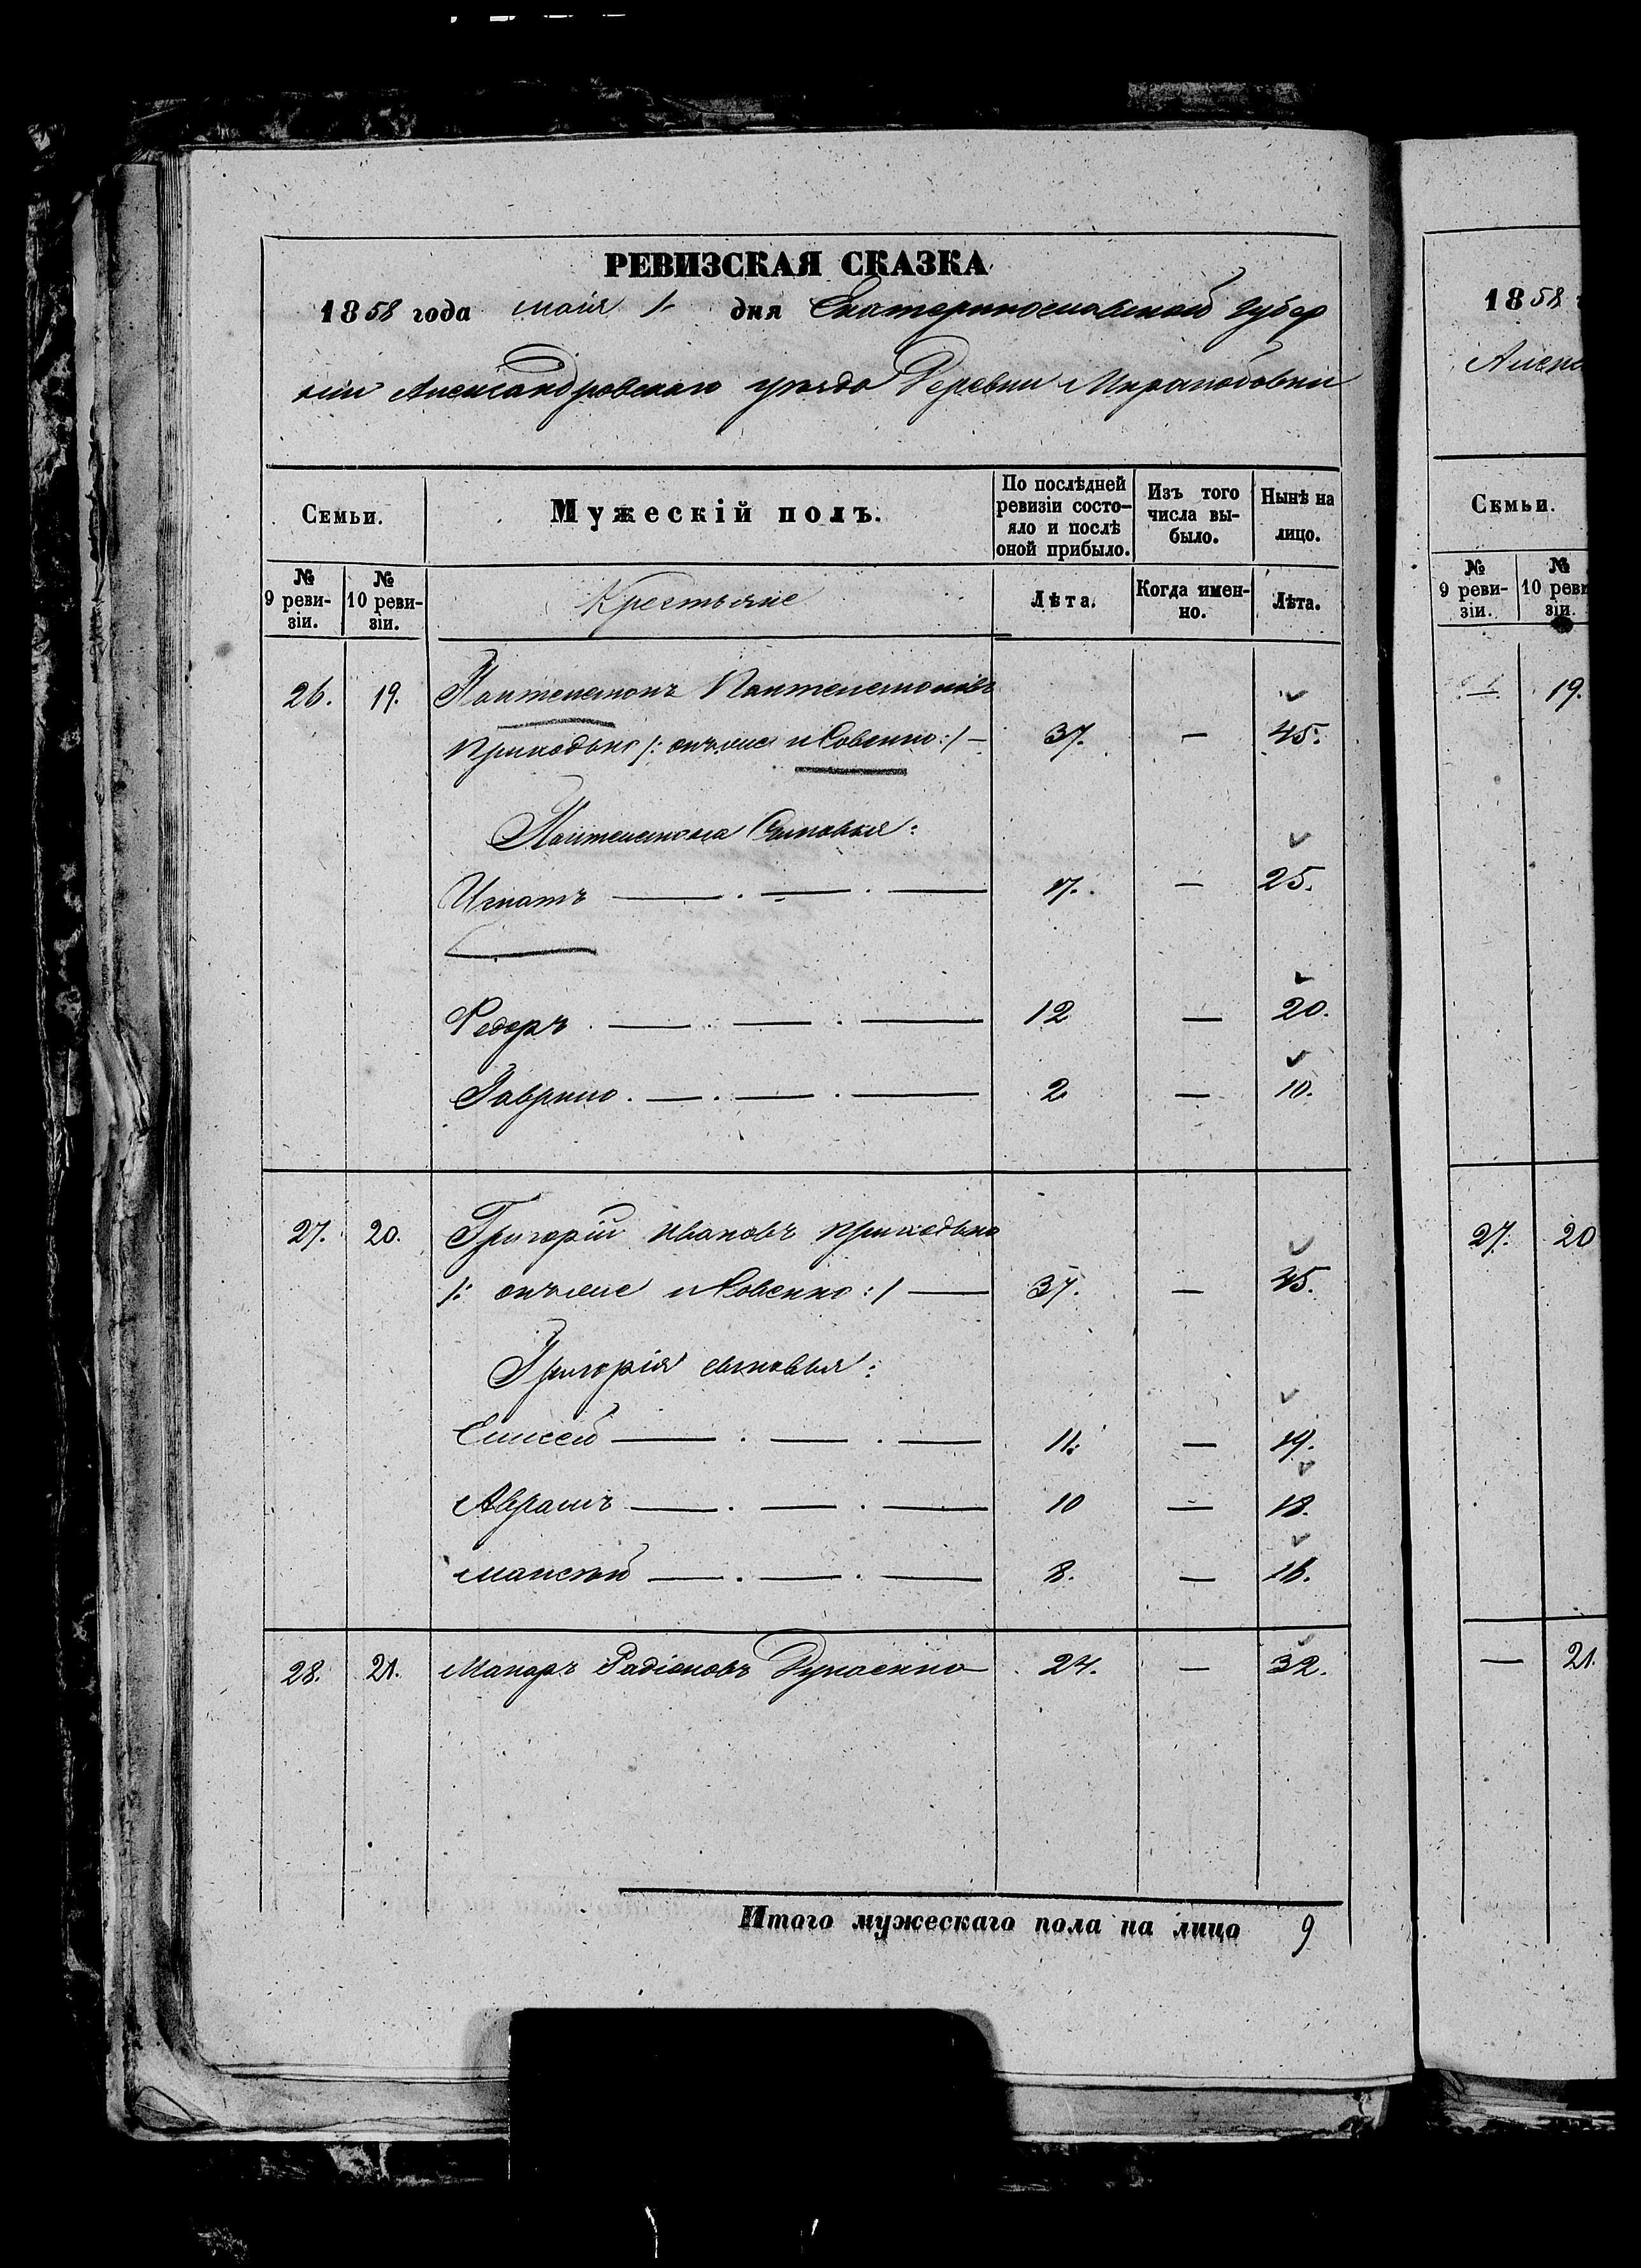 РЕВИЗСКАЯ СКАЗКА
1858 года маія 1 дня Екатеринославской губер
ніи Александровскаго уѣзда Деревни
Семьи.
Мужескій полъ.
По послѣдней ревизіи состо-
яло и послѣ
оной прибыло.
Изъ того
числа вы-
было.
Нынѣ на
лицо.
№
9 реви-
зіи.
№
10 реви-
зіи.
Крестьяне
Лѣта.
Когда имен-
но.
Лѣта.
26. 19. Пантелемонъ Пантелемоновъ
Приходько /: онъ же и Совенко :/ — 37. — 45.
Пантелемона Сыновья:
Игнатъ — . — . — 17. — 25.
Федоръ . — . — . — 12 — 20.
Гаврило . — . — . — 2 — 10.
27. 20. Григорій Ивановъ Приходько
/: онъ же и Совенко :/ — 37. — 45.
Григорія сыновья:
Елисей — . — . — 11. — 19.
Аврамъ — . — . — 10 — 18.
Моисѣй — . — . — 8. — 16.
28. 21. Макаръ Радіоновъ 24. — 32.
Итого мужескаго пола на лицо 9
1858
Алекс
Семьи.
№
9 реви-
зіи.
№
10 реви
зіи.
— 19.
27. 20
— 21.